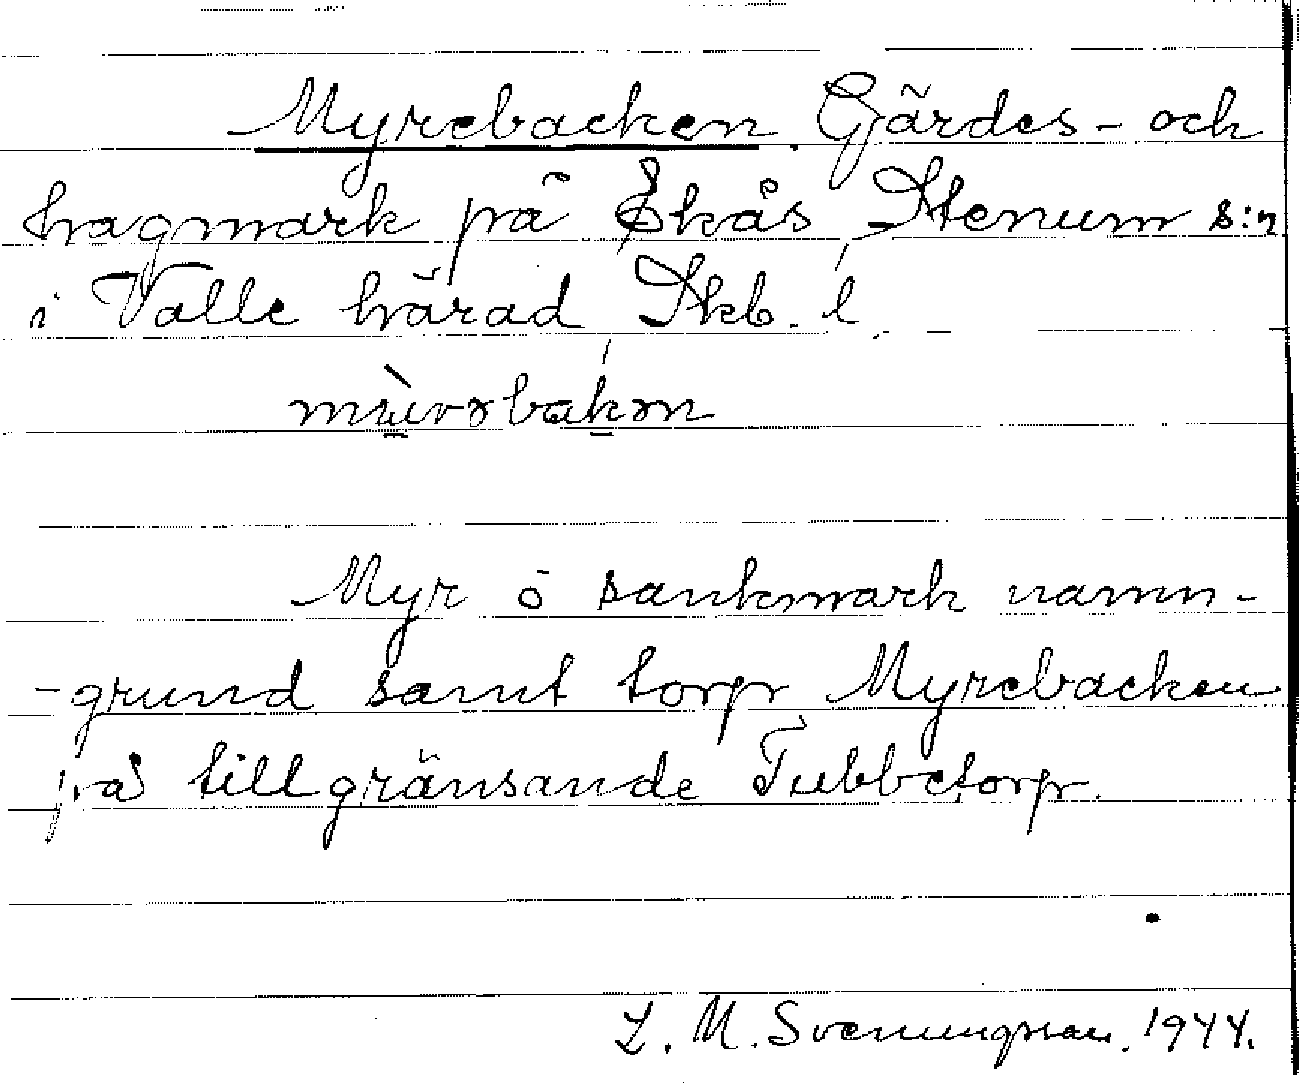 Myrebacken. Gärdes- och
hagmark på Ekås Stenum s:n
i Valle härad Skb. l.
Myr o sankmark namn-
-grund samt torp Myrebacken
på tillgränsande Tubbetorp.
L. M. Svenungsson. 1944.